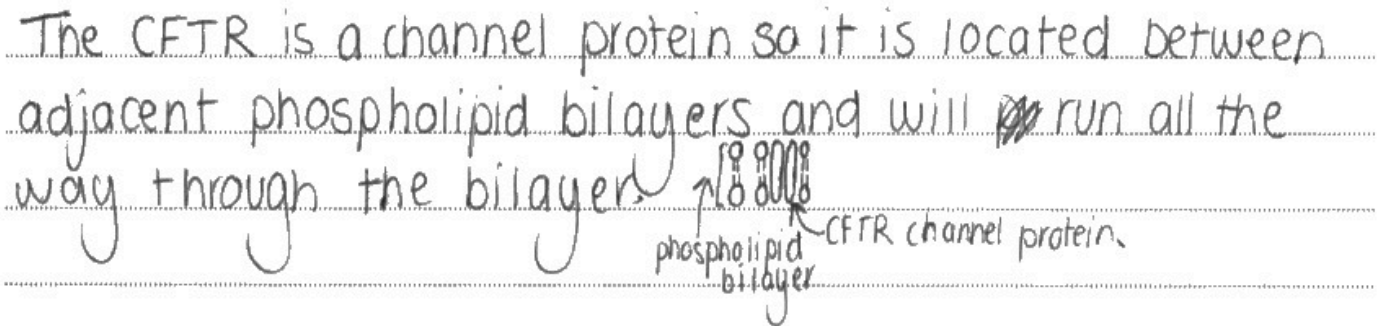 The CFTR is a channel protein so it is located between
adjacent phospholipid bilayers and will run all the
way through the bilayer.
phospholipid
bilayer
CFTR channel protein.